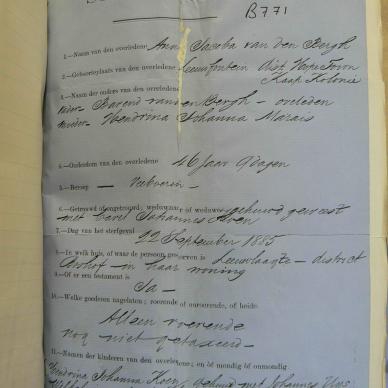 B771
1.—Naam van den overledene Anna Jacoba van den Bergh
2.—Geboorteplaats van den overledene Leeuwfontein dist. Hope Town
Kaap Kolonie
3.—Naam der ouders van den overledene
Vader— Barend van den Bergh — overleden
Moeder— Hendrina Johanna Marais
4.—Ouderdom van den overledene 46 Jaar 9 dagen
5.—Beroep — Veeboerin —
6.—Getrouwd of ongetrouwd; weduwnaar of weduwe gehuwd geweest
met Carel Johannes
7.—Dag van het sterfgeval
22 September 1885
8.—In welk huis, of waar de persoon gestorven is Leeuwlaagte — district
— in haar woning
9.—Of er een testament is
Ja —
10.—Welke goederen nagelaten; roerende of onroerende, of beide.
Alleen roerende
nog niet getaxeerd —
11.—Namen der kinderen van den overledene; en of mondig of onmondig.
Hendrina Johanna gehuwd met Johannes